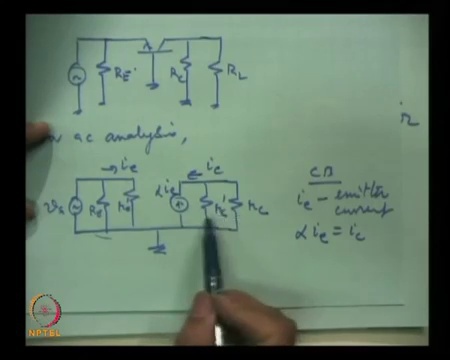 R_E
R_C
R_L
ac analysis,
i_e
i_c
v_s
R_E
r_e
αi_e
r_c'
r_c
CB
i_e - emitter
current
αi_e = i_c
NPTEL